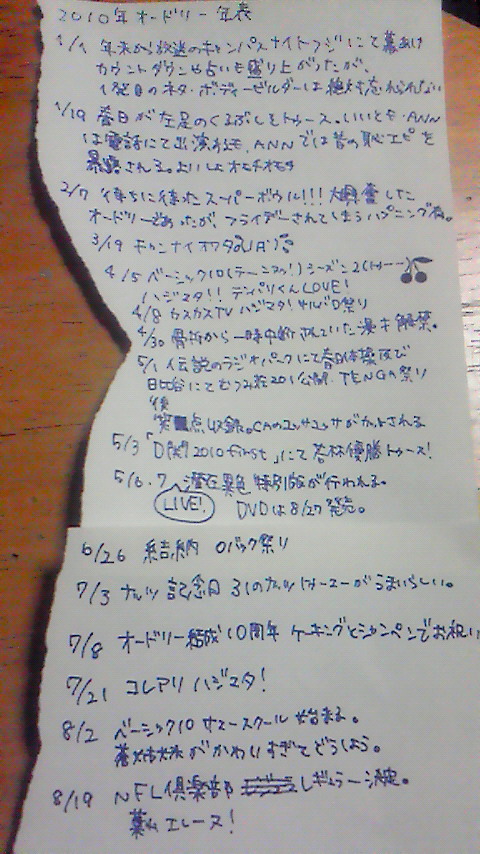 2010年 オードリー年表
1/1 年末から放送のキャンパスナイトフジにて幕あけ
カウントダウンや占いも盛り上がったが、
1発目のネタ・ボディービルダーは絶対忘れられない
1/19 春日が左足のくるぶしをトゥース。いいとも・ANN
は電話にて出演れも、ANNでは昔の恥エピを
暴露される。よいしょオモチオモチ
2/7 待ちに待ったスーパーボウル!!!大興奮した
オードリーであったが、フライデーされてしまうハプニング有。
3/19 キャンナイオワタ
4/5 ベーシック10(テーニスゥ!)シーズン2(トゥーー)
ハジマタ!! デンパリくんLOVE!
4/8 カスカスTV ハジマタ! 祭り
4/30 骨折から一時中断されていた漫才解禁。
5/1 伝説のラジオパークにて春日体操及び
日比谷にてむつみ荘201公開。TENGA祭り
後
笑 点収録。CAのユッサユッサがカットされる
5/3「D関2010 first」にて若林優勝トゥース!
5/6.7 潜在異色 特別版が行われる。
LIVE! DVDは8/27発売。
6/26 結納 0バック祭り
7/3 ナッツ記念日 31のナッツトゥーユーがうまいらしい。
7/8 オードリー結成10周年 ケーキングとシャンペンでお祝い
7/21 コレアリ ハジマタ!
8/2 ベーシック10 サマースクール 始まる。
がかわいすぎてどうしよう。
8/19 NFL倶楽部 レギュラー決定。
エレース!